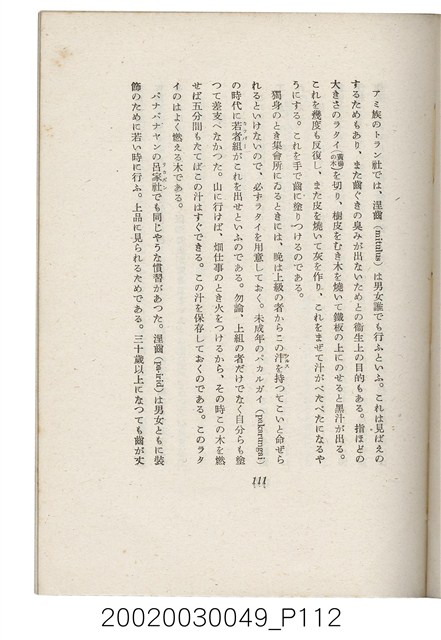 アミ族のトラン社では、涅齒(mitulus)は男女誰でも行ふといふ。これは見ばえの
するためもあり、また齒ぐきの臭みが出ないためとの衞生上の目的もある。指ほどの
大きさのラタイ(黄藤の木)を切り、樹皮をむき木を燒いて鐵板の上にのせると黑汁が出る。
これを幾度も反復し、また皮を燒いて灰を作り、これをまぜて汁がべたべたになるや
うにする。これを手で齒に塗りつけるのである。
獨身のとき集會所にゐるときには、晩は上級の者からこの汁を持つてこいと命ぜら
れるといけないので、必ずラタイを用意しておく。未成年のパカルガイ(pakarungai)
の時代に若者組がこれを出せといふのである。勿論、上組の者だけでなく自分らも塗
つて差支へなかつた。山に行けば、畑仕事のとき火をつけるから、その時この木を燃
せば五分間もたてばこの汁はすぐできる。この汁を保存しておくのである。このラタ
イのはよく燃える木である。
パナパナヤンの呂家社でも同じやうな慣習があつた。涅齒は男女ともに裝
飾のために若い時に行ふ。上品に見られるためである。三十歲以上になつても齒が丈
111
20020030049_P112